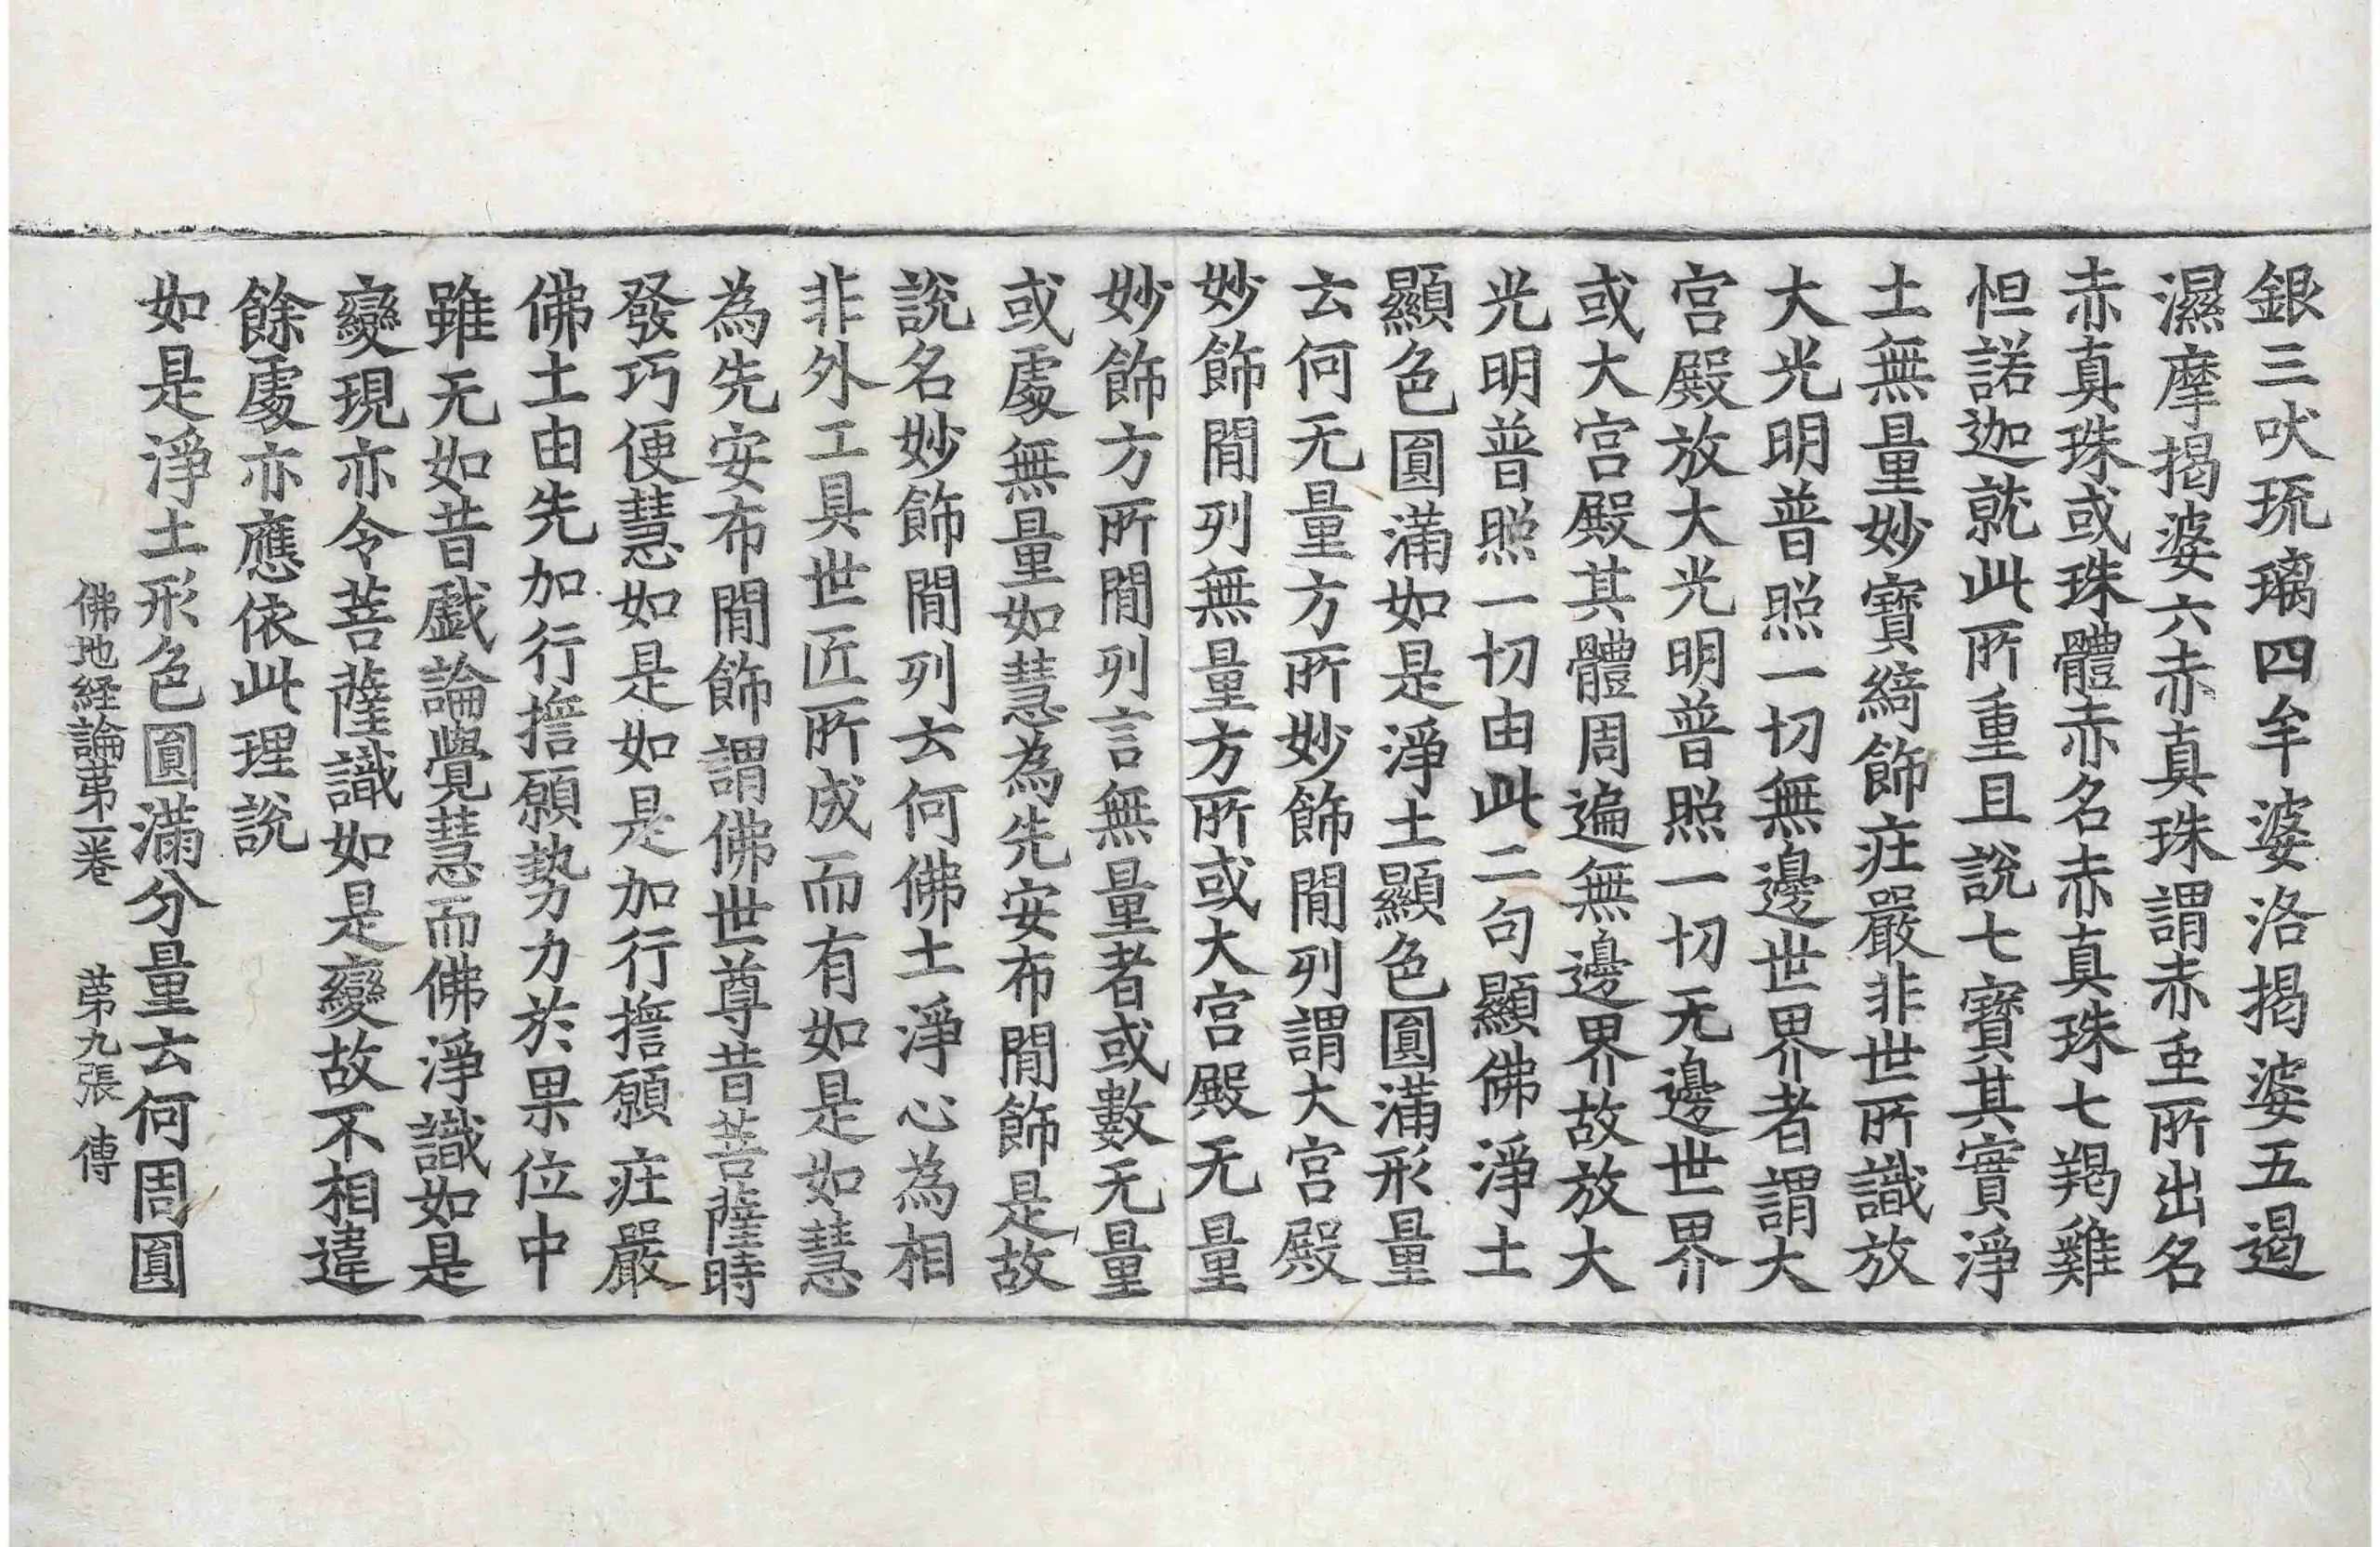 銀三吠琉璃四牟婆洛揭婆五遏
濕摩揭婆六赤真珠謂赤虫所出名
赤真珠或珠體赤名赤真珠七羯雞
怛諾迦就此所重且說七寶其實淨
土無量妙寶綺飾庄嚴非世所識放
大光明普照一切無邊世界者謂大
宮殿放大光明普照一切无邊世界
或大宮殿其體周遍無邊界故放大
光明普照一切由此二句顯佛淨土
顯色圓滿如是淨土顯色圓滿形量
云何无量方所妙飾閒列謂大宮殿
妙飾閒列無量方所或大宮殿无量
妙飾方所閒列言無量者或數无量
或處無量如慧為先安布閒飾是故
說名妙飾閒列云何佛土淨心為相
非外工具世匠所成而有如是如慧
為先安布閒飾謂佛世尊昔菩薩時
發巧便慧如是如是加行擔願庄嚴
佛土由先加行擔願勢力於果位中
雖无如昔戲論覺慧而佛淨識如是
變現亦令菩薩識如是變故不相違
餘處亦應依此理說
如是淨土形色圓滿分量云何周圓
佛地経論苐一卷　苐九張　傳